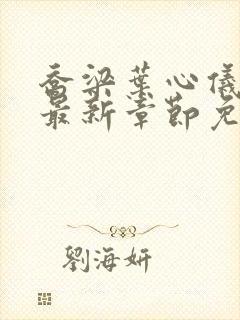 乔梁葉心儀
最新章節免
劉海妍